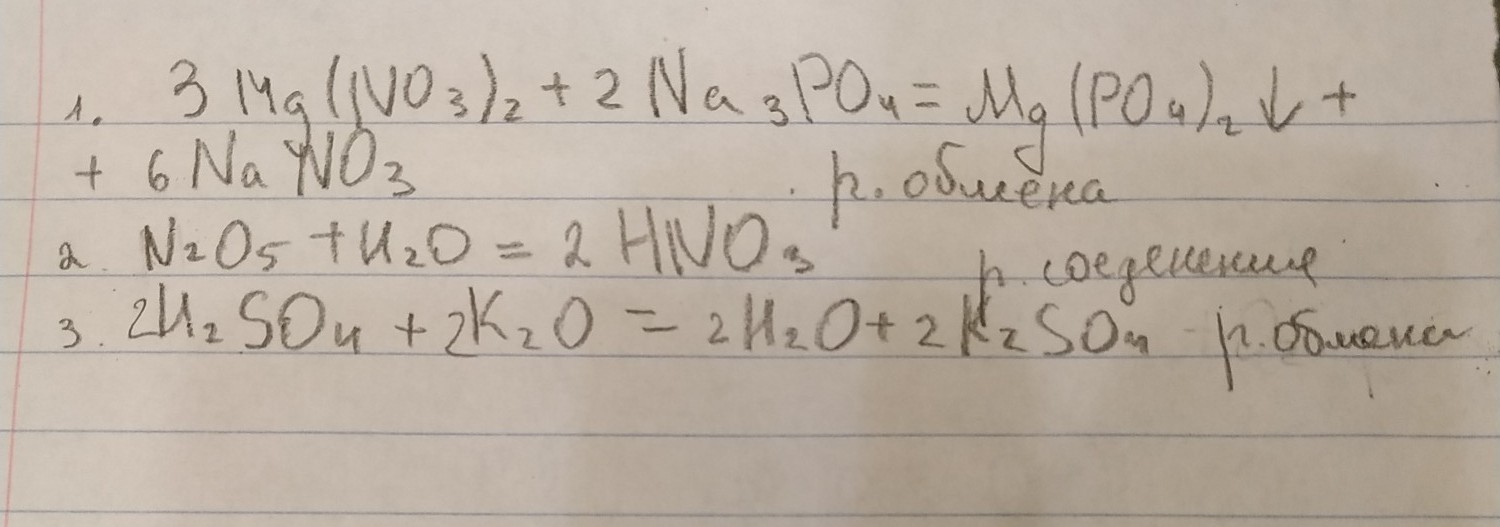 1. 3 Mg(NO₃)₂ + 2 Na₃PO₄ = Mg(PO₄)₂ ↓ +
+ 6 NaNO₃ р. обмена
2. N₂O₅ + H₂O = 2 HNO₃ р. соеденения
3. 2H₂SO₄ + 2K₂O = 2H₂O + 2K₂SO₄ - р. обмена